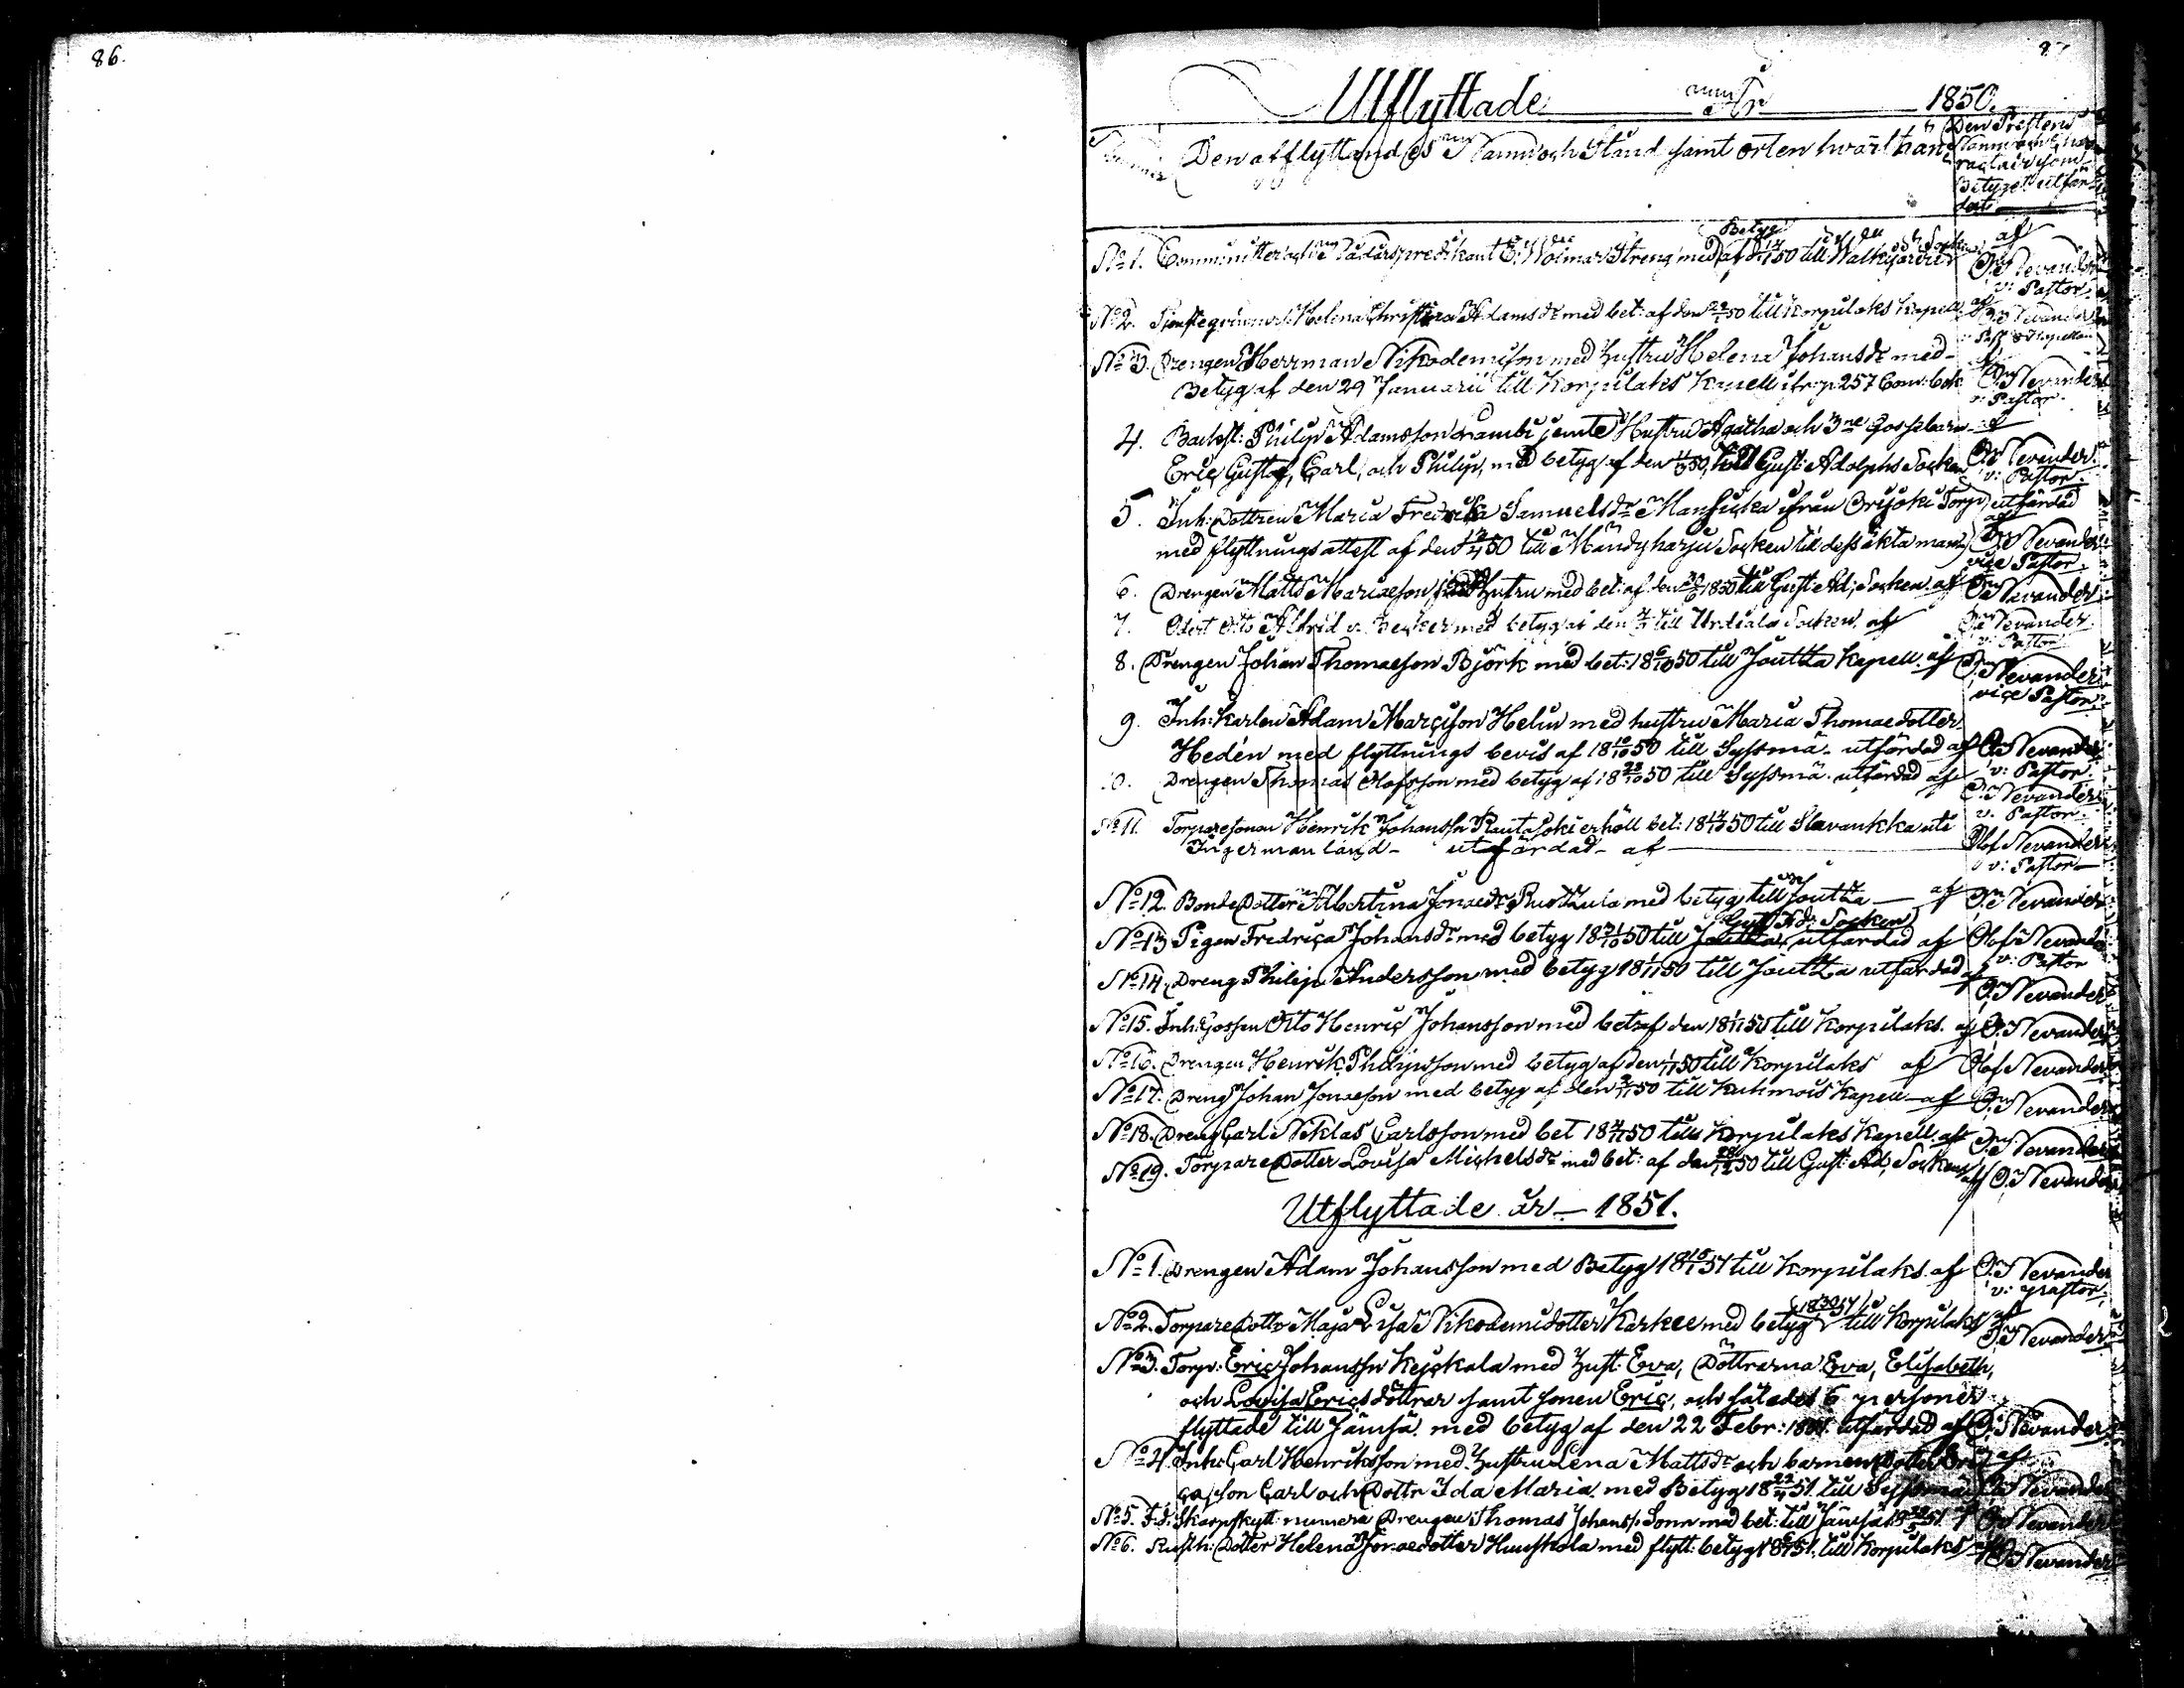 86.
87
Utflyttade År 1850.
Den afflyttandes Namn och Stånd samt orten hwart han
Den Prestens
Namn och Cha-
ractair som
Betyget utfär-
dat
Betyg
No 1. Comminister och Wolmar Streng med af d: 50 till Walkjärvi Socken af
O. Nevander
v: Pastor.
No 2. Helena Christina Adamsdr med bet: af den 50 till Korpilaks Kapell af
O. Nevander
No 3. Drengen Herrman Nikodemusson med Hustru Helena Johansdr med
Betyg af den 29 Januarii till Korpilaks Kapell p 257 Com: bok
O. Nevander
v: Pastor.
4. Backst: Philip Adamsson jemte Hustru Agatha och 3ne Gossebarn
Eric Gustaf, Carl, och Philip, med betyg af den 50, till Gust: Adolphs Socken
O. Nevander.
v: Pastor.
5. Inh: Dottren Maria Fredrika Samuelsdr ifrån Torp utfärdad
med flyttningsattest af den 50 till Mändyharju Socken till dess äkta man af
O. Nevander
viçe Pastor.
6. Drengen Matts Mariaeson Hustru med bet: af den 1850 till Gust: Ad: Socken. af
O. Nevander
7. Otto Alfrid v. Becker med betyg af den till Urdiala Socken af
O. Nevander
v: Pastor
8. Drengen Johan Thomaeson Björk med bet: 18 6/10 50 till Joutsa Kapell. af
O. Nevander
viçe Pastor.
9. Inh: Karlen Adam Marçisson Helin med hustru Maria Thomaedotter
Hedén med flyttnings bevis af 18 10/10 50 till Syssmä. utfärdad af
O. Nevander
v: Pastor.
10. Drengen Thomas Olofsson med betyg af 18 28/10 50 till Syssmä. utfärdad af
O. Nevander
v. Pastor.
No 11. Torparesonen Henrik Johanssn Rautajoki erhöll bet: 18 50 till Slavankka uti
Ingermanland - utfärdad - af
Olof Nevander
v: Pastor
No 12. Bonde Dotter Albertina Jonaedr med betyg till Joutsa — af
O. Nevander
Gust: Ad: Socken
No 13 Pigan Fredriça Johansdr med betyg 18 31/10 50 till Joutsa, utfärdad af
Olof Nevander
v: Pastor
No 14. Dreng Philip Andersson med betyg 18 1/11 50 till Joutsa utfärdad af
O. Nevander
No 15. Inh: Gossen Otto Henriç Johansson med bet: af den 18 1/11 50 till Korpilaks. af
O. Nevander
No 16. Drengen Henrik Philipsson med betyg af den 1/11 50 till Korpilaks af
Olof Nevander
No 17. Dreng Johan Jonaeson med betyg af den 50 till Kuhmois Kapell af
O. Nevander
No 18. Dreng Carl Niklas Carlsson med bet 18 50 till Korpilaks Kapell. af
O. Nevander
No 19. Torpare Dotter Lovisa Michelsdr med bet: af den 50 till Gust: Ad: Socken af
O. Nevander
Utflyttade år — 1851.
No 1. Drengen Adam Johansson med Betyg 18 51 till Korpilaks. af
O. Nevander
v: pastor.
No 2. Torpare Dottr Maja Lisa Nikodemidotter Karkee med betyg till Korpilaks af
O. Nevander
No 3. Torp: Eriç Johanssn Keiçkala med Hust: Eva, Döttrarna Eva, Elisabeth,
och Lovisa Eriçsdöttrar samt sonen Eriç, och således 6 personer
flyttade till Jämsä. med betyg af den 22 Febr: 1851. utfärdad af
O. Nevander
No 4. Inh: Carl Henriksson med Hustru Lena Mattsdr och barnen
Carl och Dottr Ida Maria. med Betyg 18 22/4 51. till Syssmä af
O. Nevander
No 5. F.d. Skarpskytt: numera Drengen Thomas Johanss: Sonn med bet: till Jämsä 18 51 af
O. Nevander
No 6. Rusth: Dotter Helena Jonaedotter Huuskola med flytt: betyg 18 51. till Korpilaks af
O. Nevander